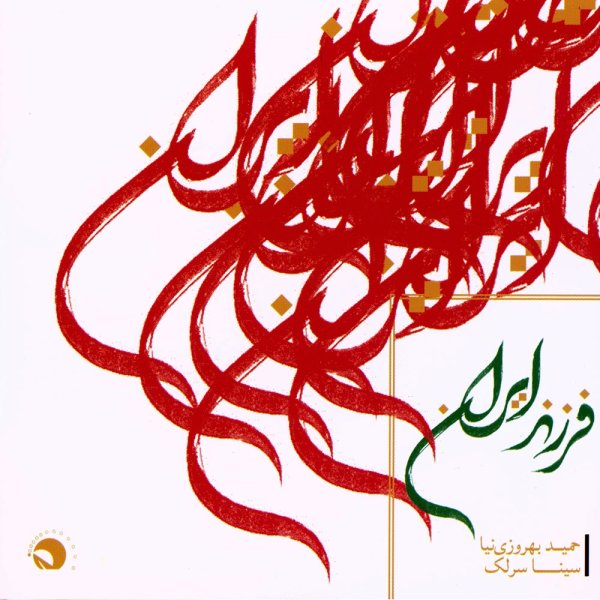 ایران
فرزند ایران
حمید بهروزی‌نیا
سینا سرلک